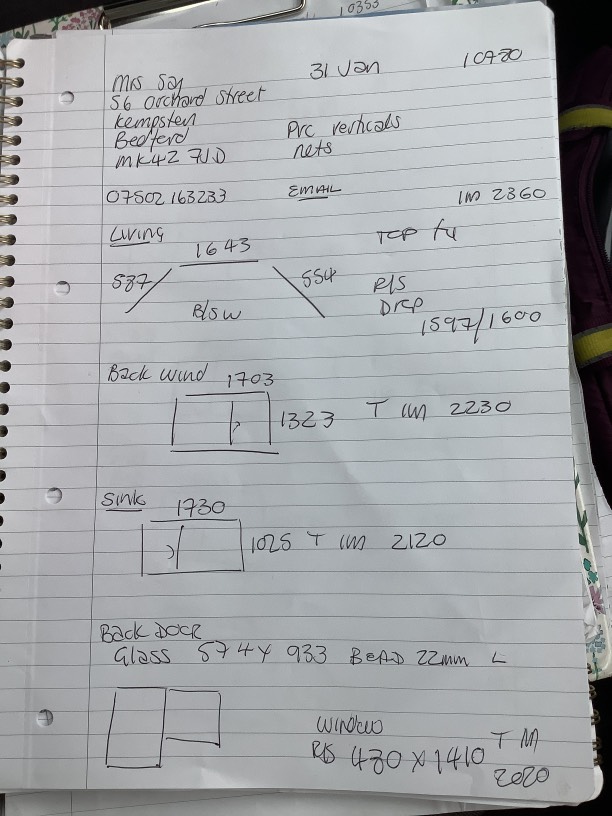 10353
31 Jan
10420
Mrs Say
56 Orchard Street
Kempsten
Bedford
MK42 7JD
PVC verticals
nets
07502 163233
EMAIL
IM 2360
Living
1643
TOP fu
587
554
R/S
B/SW
Drop
1597/1600
Back Wind
1703
1323
T IM 2230
Sink
1730
1025
T IM 2120
Back Door
Glass 574 X 933 BEAD 22mm L
Window
R/S 430 X 1410
T M
2020